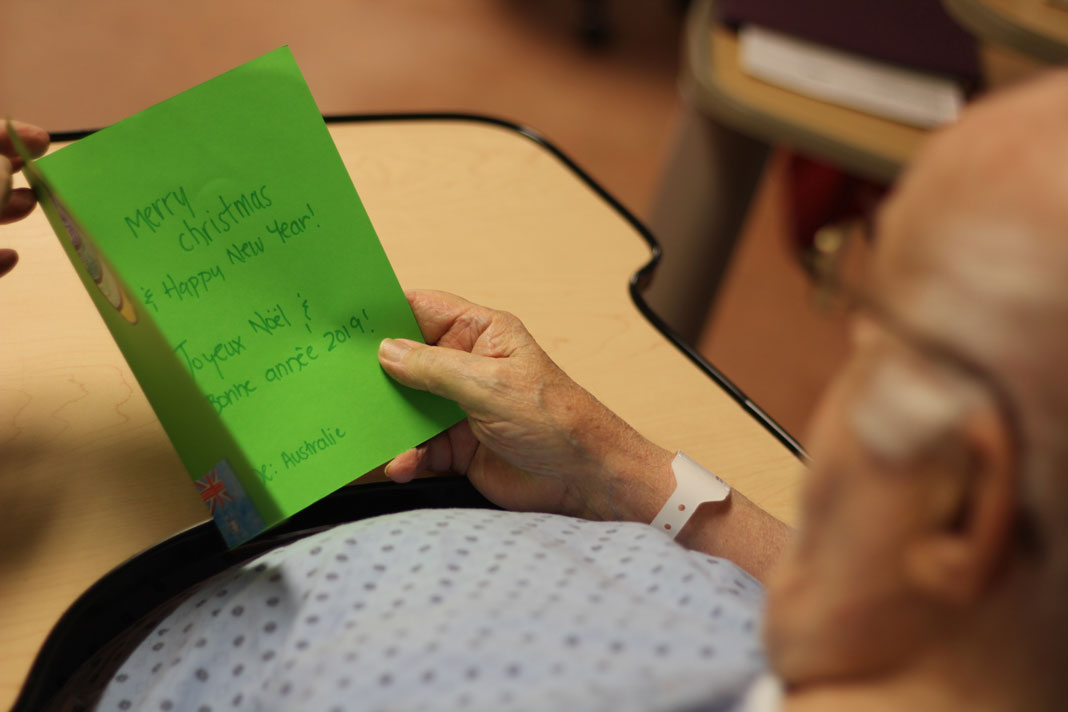 Merry
christmas
& Happy New Year!
Joyeux Nöel &
Bonne année 2019!
De: Australie